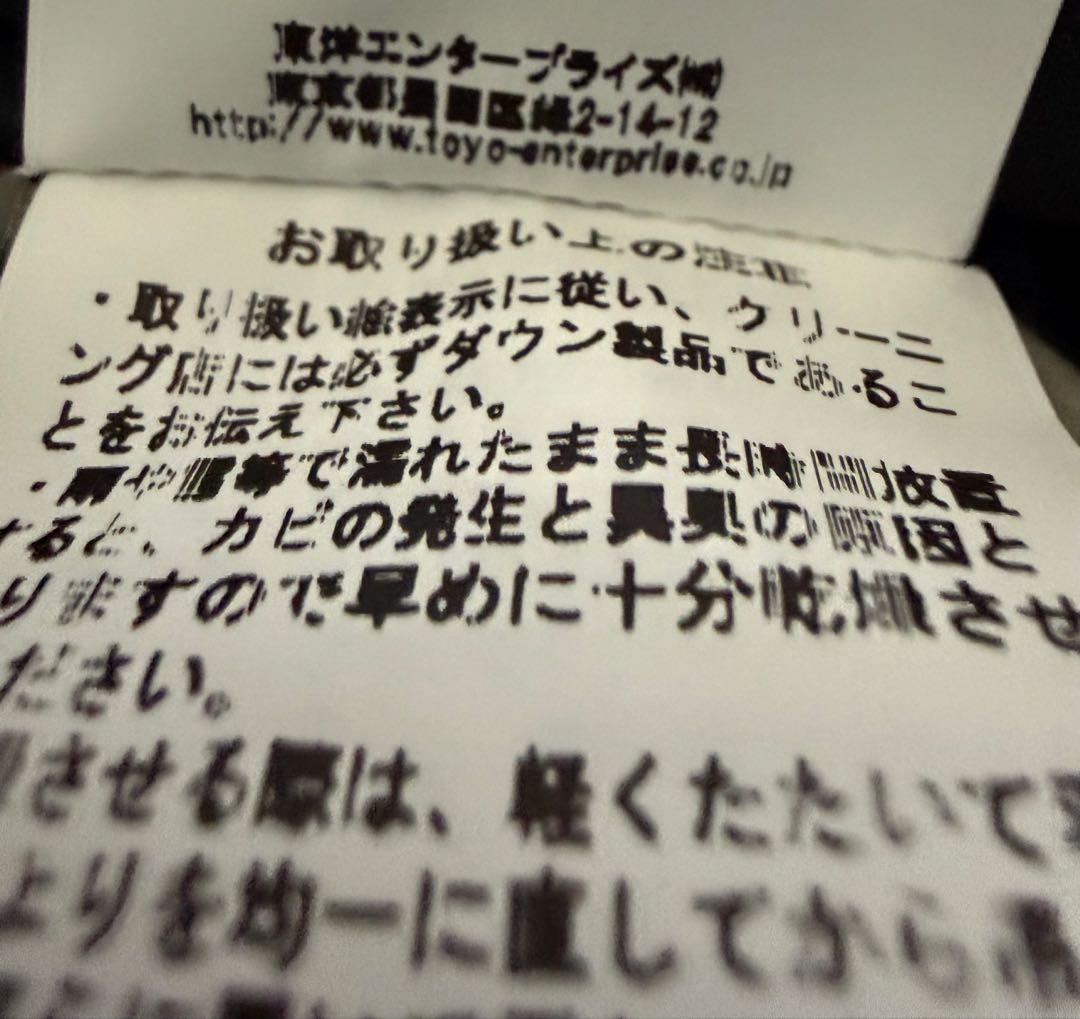 東洋エンタープライズ㈱
東京都墨田区緑2-14-12
http://www.toyo-enterprise.co.jp
お取り扱い上の注意
・取り扱い絵表示に従い、クリーニ
ング店には必ずダウン製品であるこ
とをお伝え下さい。
・雨や雪等で濡れたまま長時間放置
すると、カビの発生と異臭の原因と
りますので早めに十分乾燥させ
ださい。
させる際は、軽くたたいて
よりを均一に直してから